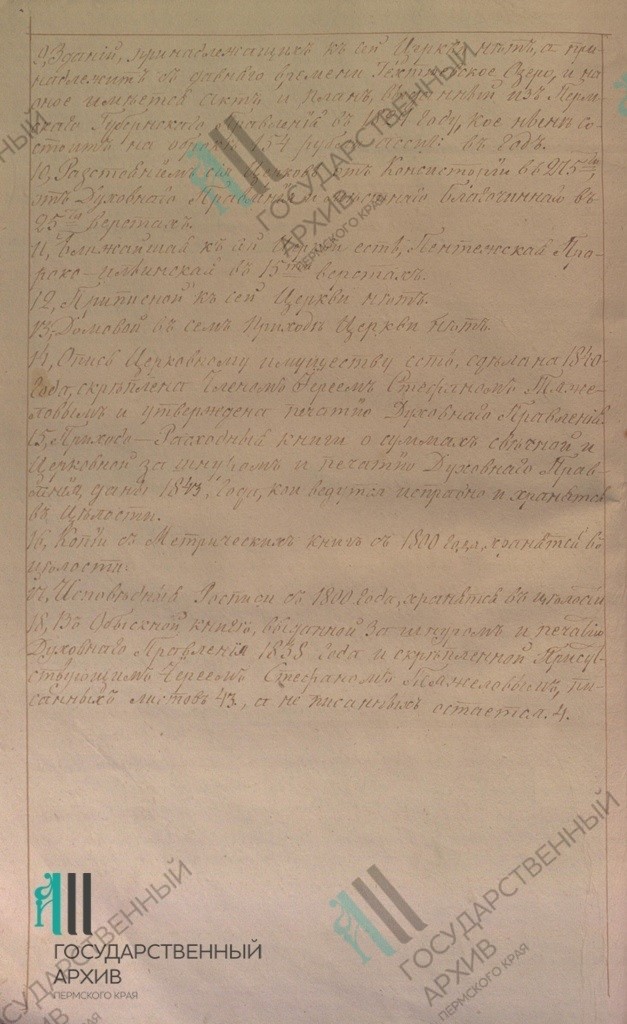 9, Зданій, принадлежащихъ къ сей Церкви нѣтъ, а при-
надлежитъ съ давняго времени Озеро, и на
оное имѣется актъ и планъ, изъ Перм-
скаго Губернскаго Правленія въ году, кое нынѣ со-
стоитъ на оброкѣ 154 руб: ассиг: въ годъ.
10, Разстояніемъ сія Церковь отъ Консисторіи въ 275ти
отъ Духовнаго Правленія и Благочиннаго въ
25ти верстахъ.
11, Ближайшая къ сей Церкви есть, Пентежская Про-
роко-ильинская въ 15ти верстахъ.
12, Приписной къ сей Церкви нѣтъ.
13, Домовой въ семъ приходѣ Церкви нѣтъ.
14, Опись Церковному имуществу есть, сдѣлана
года, скрѣплена Членомъ Іереемъ Стефаномъ Тяже-
ловымъ и утверждена печатію Духовнаго Правленія.
15, Приходо-Расходныя книги о суммахъ свѣчной и
Церковной за шнуромъ и печатію Духовнаго Прав-
ленія, даны 1843 года, кои ведутся исправно и хранятся
въ цѣлости.
16, Копіи съ Метрическихъ книгъ съ 1800 года, хранятся въ
цѣлости.
17, Исповѣдныя Росписи съ 1800 года, хранятся въ цѣлости
18, Въ Обыскной книгѣ, выданной за шнуромъ и печатію
Духовнаго Правленія 1838 года и скрѣпленной Присут-
ствующимъ Іереемъ Стефаномъ Тяжеловымъ, пи-
санныхъ листовъ 43, а не писанныхъ остается 4.
ГОСУДАРСТВЕННЫЙ
АРХИВ
ПЕРМСКОГО КРАЯ
ГОСУДАРСТВЕННЫЙ
АРХИВ
ПЕРМСКОГО КРАЯ
ГОСУДАРСТВЕННЫЙ
АРХИВ
ПЕРМСКОГО КРАЯ